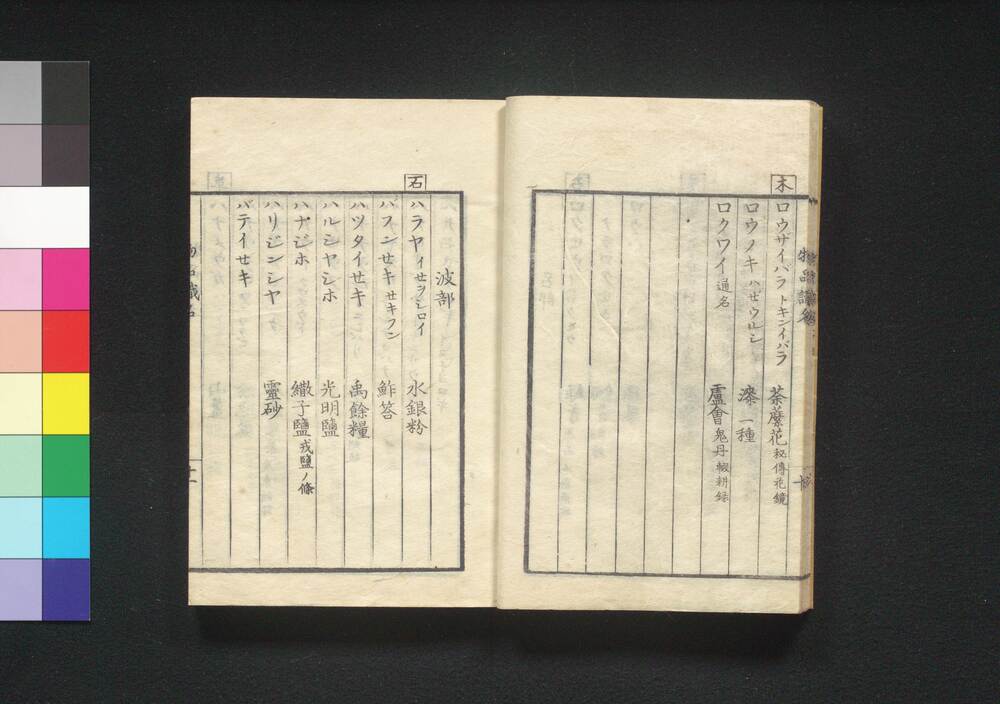 木
ロウザイバラ トキンイバラ 荼蘼花 秘傳花鏡
ロウノキ ハゼウルシ 漆 一種
ロクワイ 通名 盧會 鬼丹 輟耕録
波部
石
ハラヤ イセヲシロイ 水銀粉
ハフンセキ セキフン 鮓荅
ハツタイセキ 禹餘糧
ハルシヤシホ 光明鹽
ハナジホ 繖子鹽 戎鹽ノ條
ハリシンシヤ 靈砂
バテイセキ